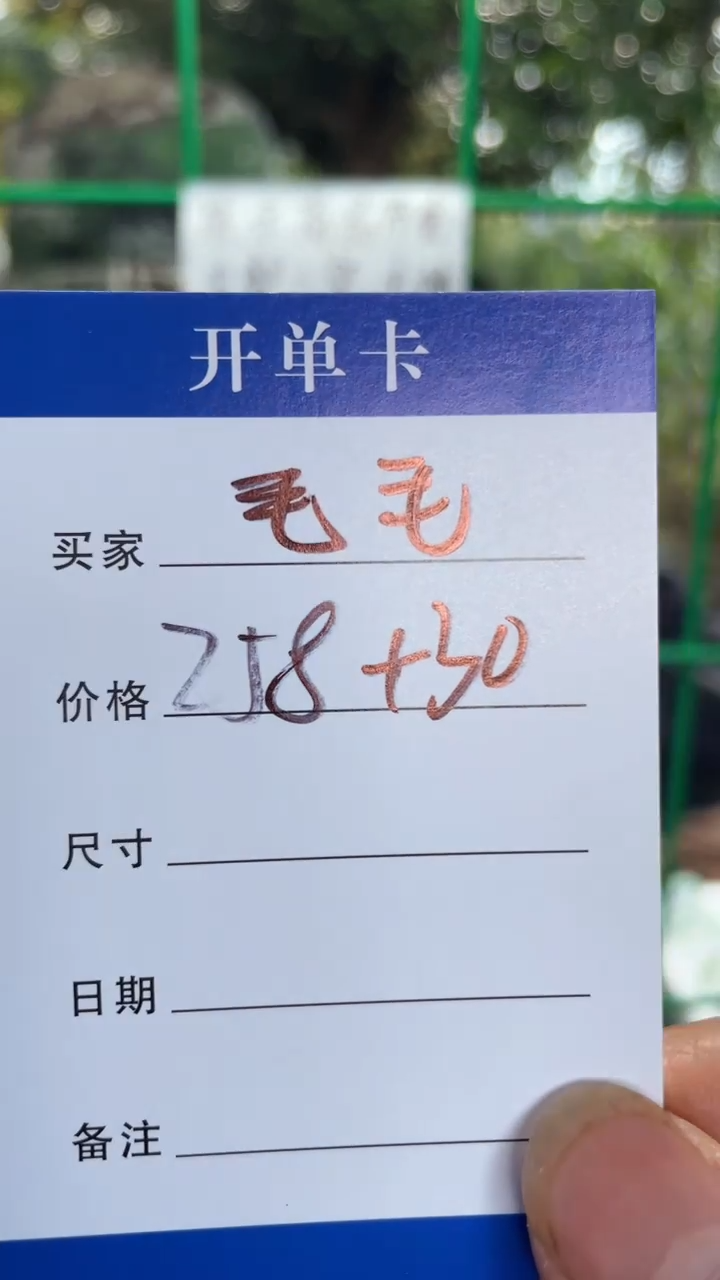 开单卡
买家 毛毛
价格 258+30
尺寸
日期
备注